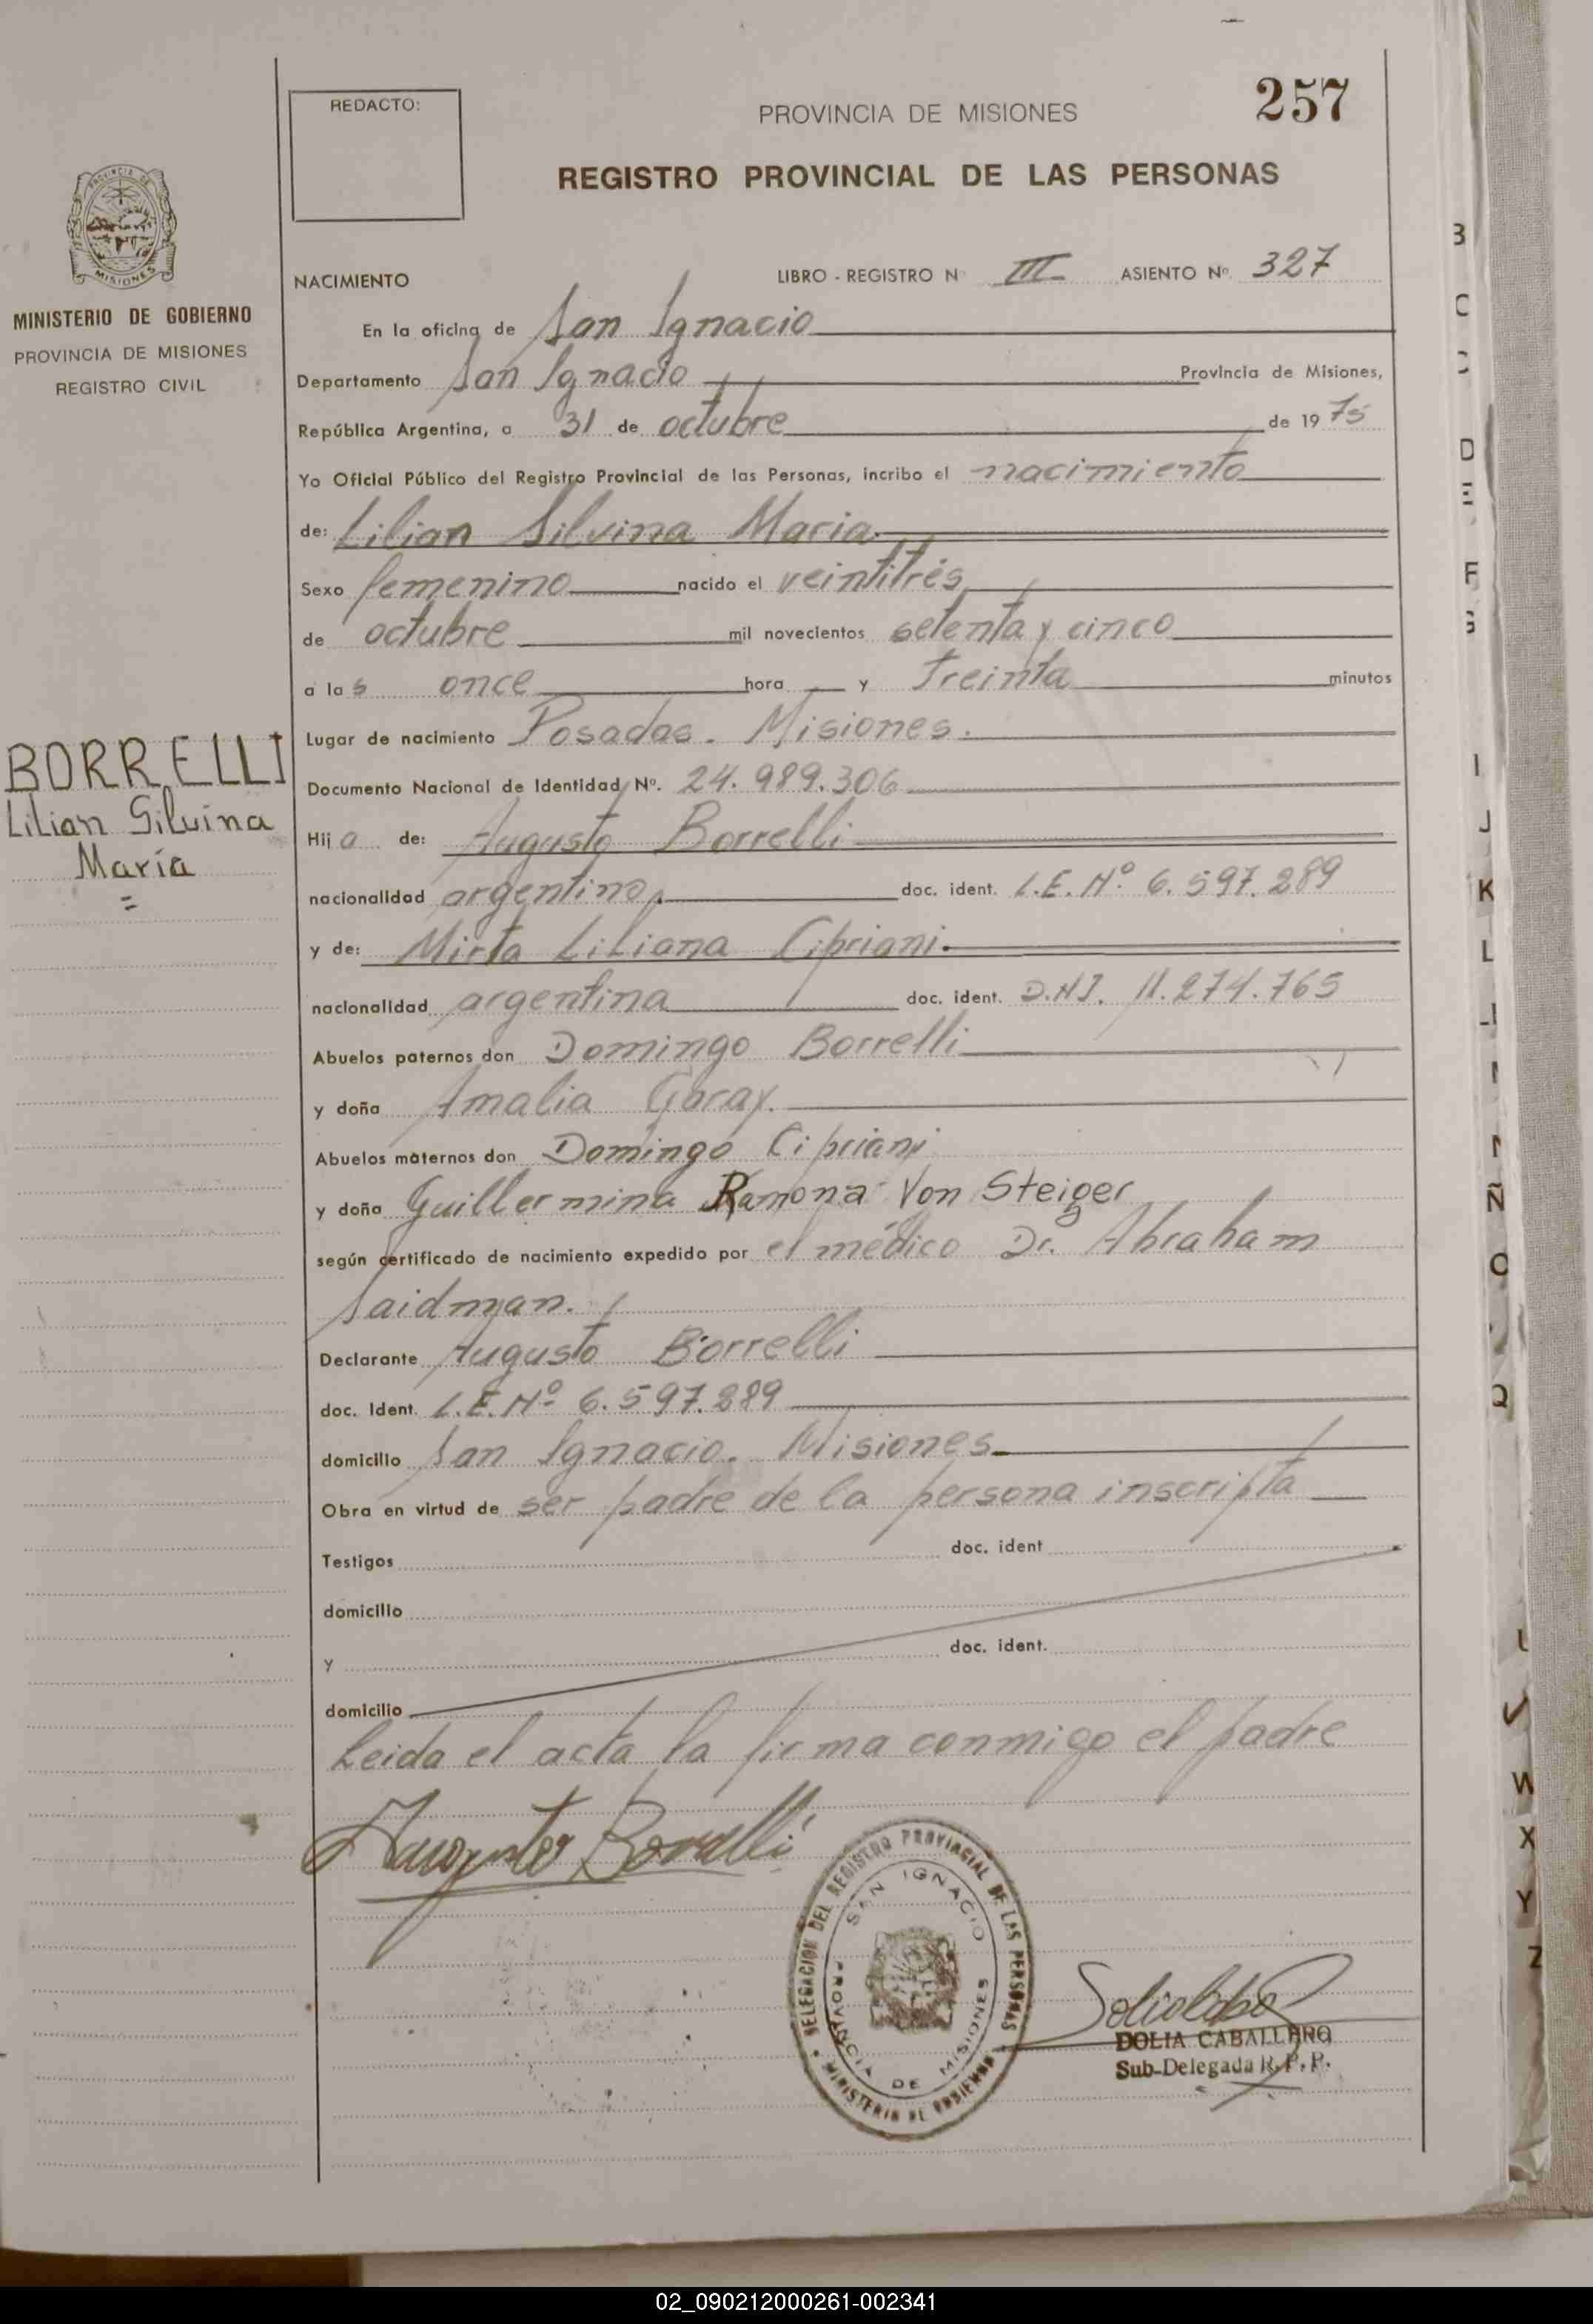 257
REDACTO:
PROVINCIA DE MISIONES
REGISTRO PROVINCIAL DE LAS PERSONAS
PROVINCIA DE
MISIONES
MINISTERIO DE GOBIERNO
PROVINCIA DE MISIONES
REGISTRO CIVIL
NACIMIENTO LIBRO - REGISTRO Nº III ASIENTO Nº 327
En la oficina de San Ignacio
Departamento San Ignacio Provincia de Misiones,
República Argentina, a 31 de octubre de 1975
Yo Oficial Público del Registro Provincial de las Personas, incribo el nacimiento
de: Lilian Silvina Maria
Sexo femenino nacido el veintitrés
de octubre mil novecientos setenta y cinco
a las once hora y treinta minutos
Lugar de nacimiento Posadas. Misiones.
Documento Nacional de Identidad Nº. 24.989.306
BORRELLI
Lilian Silvina
María
=
Hija de: Augusto Borrelli
nacionalidad argentino. doc. ident. L.E. Nº 6.597.289
y de: Mirta Liliana Cipriani.
nacionalidad argentina doc. ident. D.N.I. 11.274.765
Abuelos paternos don Domingo Borrelli
y doña Amalia Garay.
Abuelos maternos don Domingo Cipriani
y doña Guillermina Ramona Von Steiger
según certificado de nacimiento expedido por el médico Dr. Abraham
Saidman.
Declarante Augusto Borrelli
doc. Ident. L.E. Nº 6.597.289
domicilio San Ignacio. Misiones
Obra en virtud de ser padre de la persona inscripta
Testigos doc. ident
domicilio
y doc. ident.
domicilio
Leida el acta la firma conmigo el padre
Augusto Borrelli
DELEGACION DEL REGISTRO PROVINCIAL DE LAS PERSONAS
SAN IGNACIO
PROVINCIA DE MISIONES
MINISTERIO DE GOBIERNO
DOLIA CABALLERO
Sub-Delegada R.P.P.
B
C
D
E
F
G
I
J
K
L
Ñ
O
Q
W
X
Y
Z
02_090212000261-002341